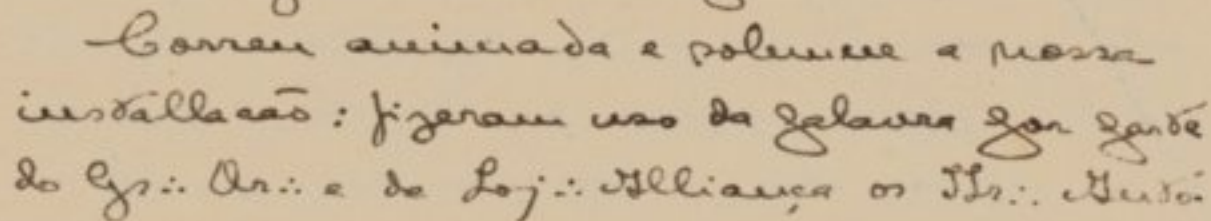 Correu animada e solemne a nossa
installacão: fizeram uso da palavra por parte
do Gr∴ Or∴ e da Loj∴ Alliança os IIr∴